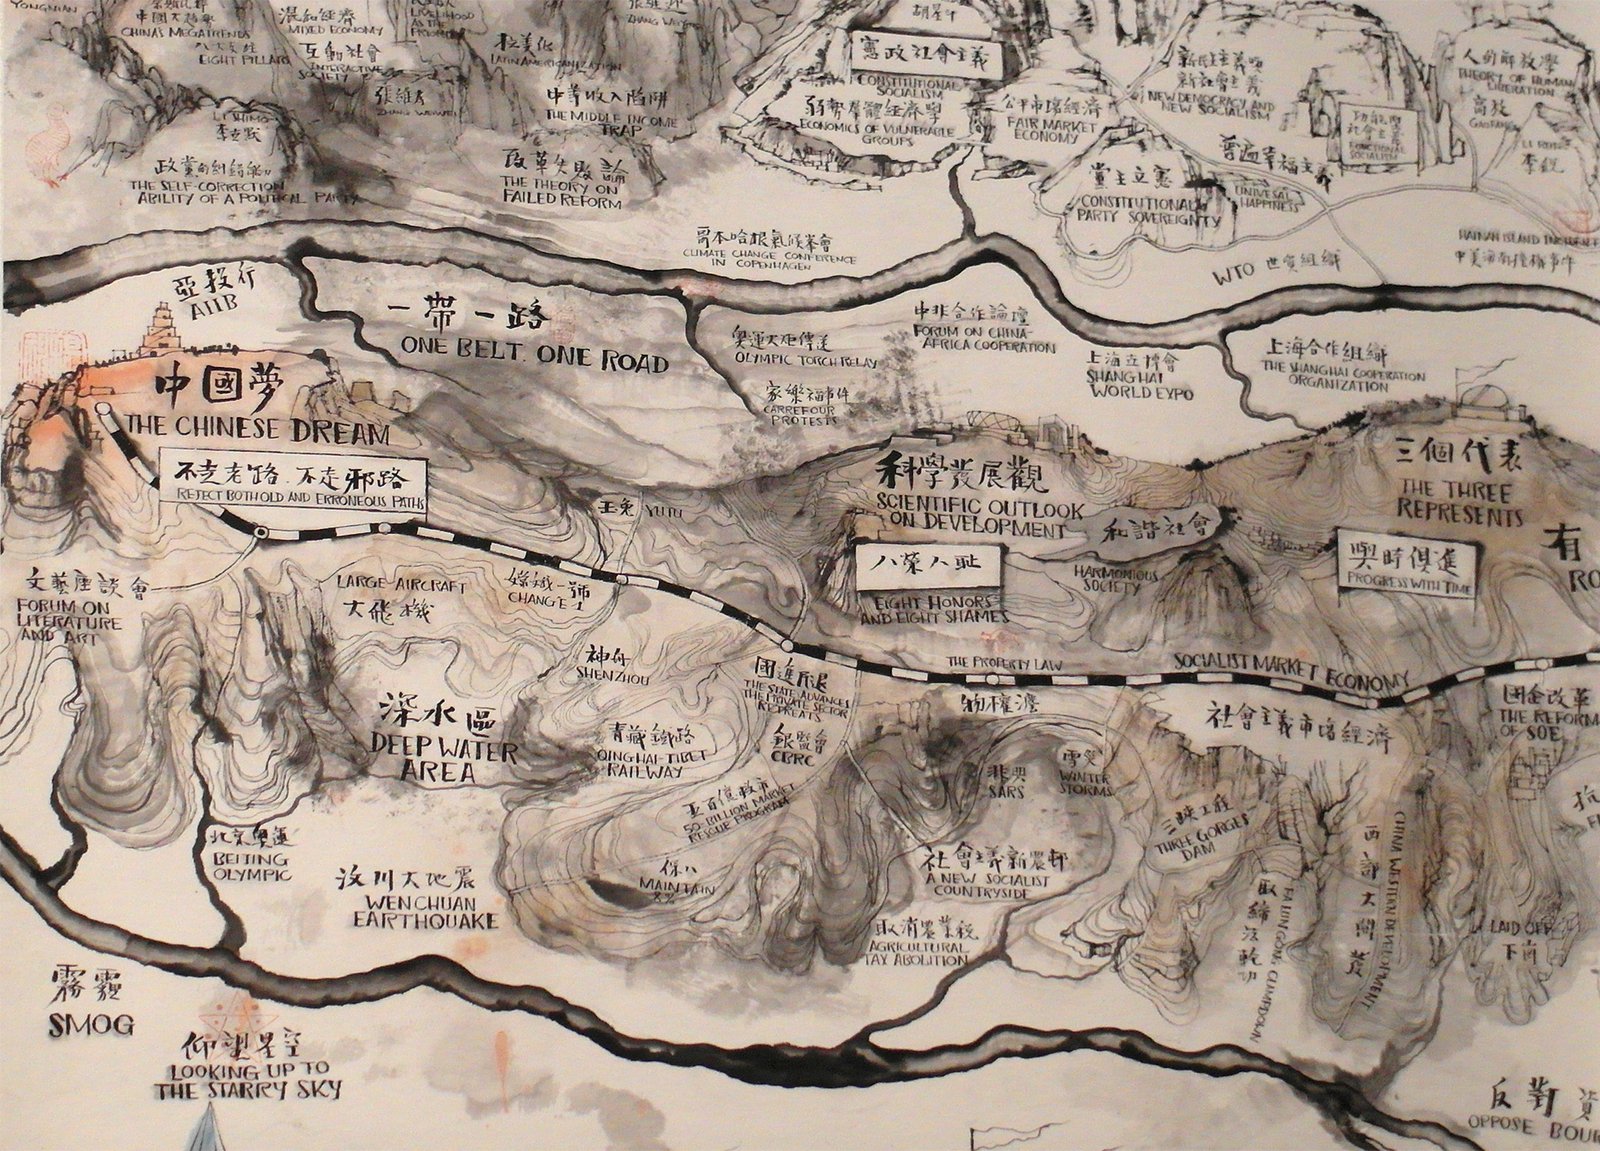 YONGNIAN
中國大趨勢
CHINA'S MEGATRENDS
八大支柱
EIGHT PILLARS
混和經濟
MIXED ECONOMY
互動社會
INTERACTIVE
SOCIETY
LIVELIHOOD
AS THE
PRIORITY
張維為
ZHANG WEIWEI
拉美化
LATIN AMERICANIZATION
中等收入陷阱
THE MIDDLE INCOME
TRAP
LI SHIMO
李世默
政黨的糾錯能力
THE SELF-CORRECTION
ABILITY OF A POLITICAL PARTY
改革失敗論
THE THEORY ON
FAILED REFORM
胡星斗
憲政社會主義
CONSTITUTIONAL
SOCIALISM
弱勢群體經濟學
ECONOMICS OF VULNERABLE
GROUPS
公平市場經濟
FAIR MARKET
ECONOMY
新民主義與
新社會主義
NEW DEMOCRACY AND
NEW SOCIALISM
功能型
社會主義
FUNCTIONAL
SOCIALISM
人的解放學
THEORY OF HUMAN
LIBERATION
高放
GAO FANG
LI RUI
李銳
普遍幸福主義
UNIVERSAL
HAPPINESS
黨主立憲
CONSTITUTIONAL
PARTY SOVEREIGNTY
哥本哈根氣候峯會
CLIMATE CHANGE CONFERENCE
IN COPENHAGEN
WTO 世貿組織
HAINAN ISLAND INCIDENT
中美海南撞機事件
亞投行
AIIB
一帶一路
ONE BELT. ONE ROAD
奧運火炬傳送
OLYMPIC TORCH RELAY
家樂福事件
CARREFOUR
PROTESTS
中非合作論壇
FORUM ON CHINA-
AFRICA COOPERATION
上海立博會
SHANGHAI
WORLD EXPO
上海合作組織
THE SHANGHAI COOPERATION
ORGANIZATION
中國夢
THE CHINESE DREAM
不走老路.不走邪路
REJECT BOTH OLD AND ERRONEOUS PATHS
科學發展觀
SCIENTIFIC OUTLOOK
ON DEVELOPMENT
和諧社會
HARMONIOUS
SOCIETY
八榮八恥
EIGHT HONORS
AND EIGHT SHAMES
三個代表
THE THREE
REPRESENTS
與時俱進
PROGRESS WITH TIME
有
RO
玉兔 YUTU
文藝座談會
FORUM ON
LITERATURE
AND ART
LARGE AIRCRAFT
大飛機
嫦娥一號
CHANG'E-1
神舟
SHENZHOU
國進民退
THE STATE ADVANCES
THE PRIVATE SECTOR
RETREATS
THE PROPERTY LAW
物權灋
SOCIALIST MARKET ECONOMY
社會主義市場經濟
國企改革
THE REFORM
OF SOE
深水區
DEEP WATER
AREA
青藏鐵路
QINGHAI-TIBET
RAILWAY
銀監會
CBRC
五百億救市
50-BILLION MARKET
RESCUE PROGRAM
保八
MAINTAIN
8%
非典
SARS
雪災
WINTER
STORMS
三峽工程
THREE GORGES
DAM
社會主義新農邨
A NEW SOCIALIST
COUNTRYSIDE
取消農業稅
AGRICULTURAL
TAX ABOLITION
取締法輪功
FALUN GONG CLAMPDOWN
西部大開發
CHINA WESTERN DEVELOPMENT
抗
LAID OFF
下崗
北京奧運
BEIJING
OLYMPIC
汶川大地震
WENCHUAN
EARTHQUAKE
霧霾
SMOG
仰望星空
LOOKING UP TO
THE STARRY SKY
反對資
OPPOSE BOUR